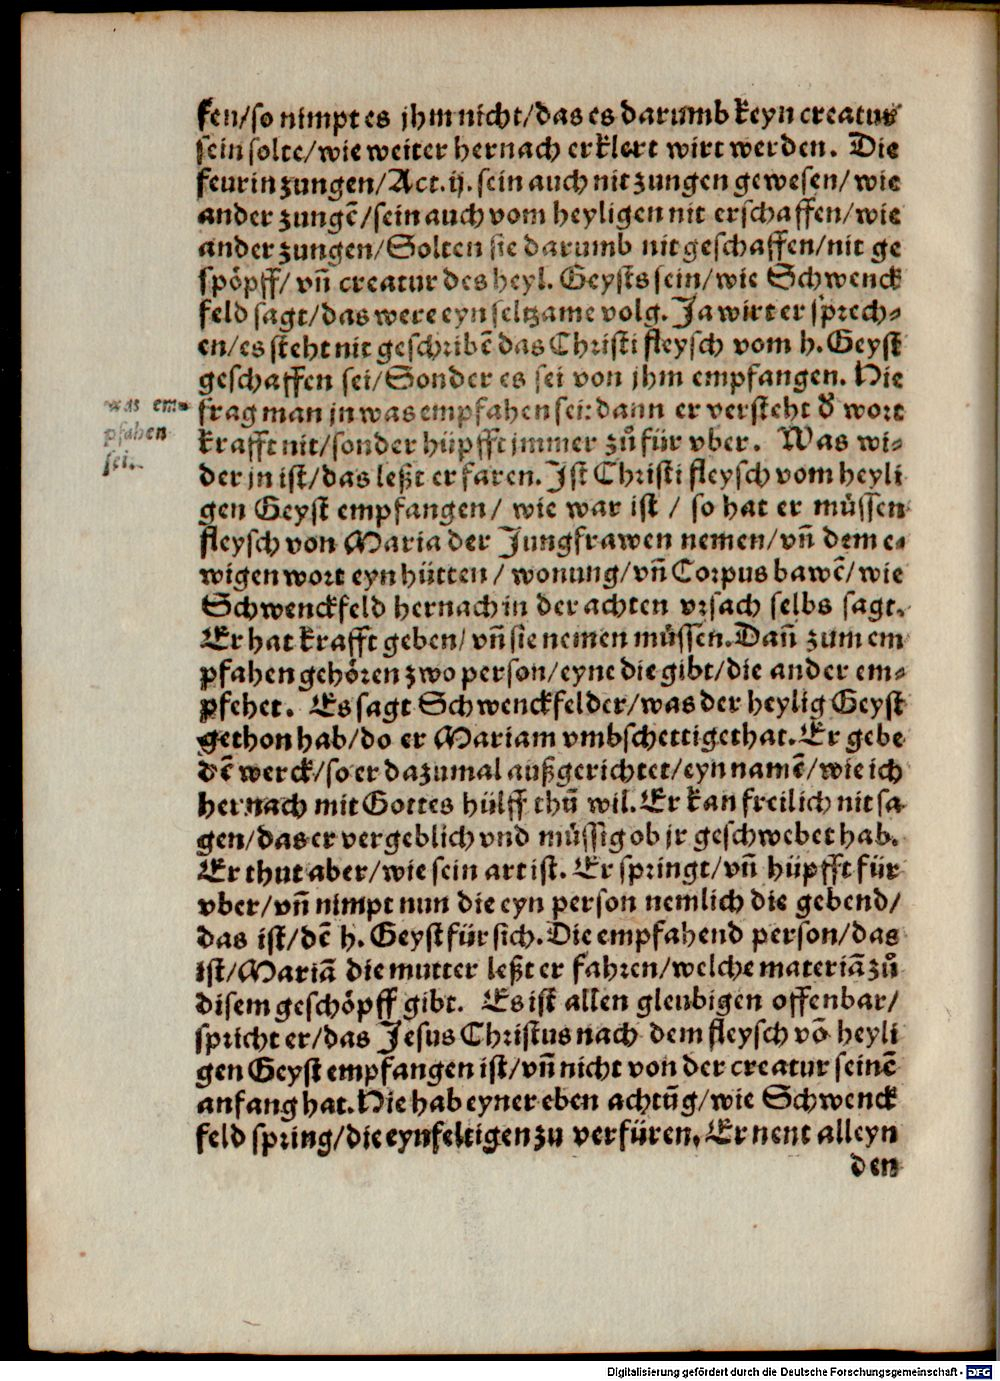 fen/so nimpt es jhm nicht/das es darumb keyn creatur
sein solte/wie weiter hernach erklert wirt werden. Die
feurin zungen/Act.ij.sein auch nit zungen gewesen/wie
ander zungē/sein auch vom heyligen nit erschaffen/wie
ander zungen/Solten sie darumb nit geschaffen/nit ge
spöpff/vn̄ creatur des heyl. Geysts sein/wie Schwenck
feld sagt/das were eyn seltzame volg. Ja wirt er sprech⸗
en/es steht nit geschribē das Christi fleysch vom h. Geyst
geschaffen sei/Sonder es sei von jhm empfangen. Hie
frag man jn was empfahen sei: dann er versteht d̕ wort
krafft nit/sonder hüpfft jmmer zů für vber. Was wi⸗
der jn ist/das leßt er faren. Ist Christi fleysch vom heyli
gen Geyst empfangen/ wie war ist / so hat er müssen
fleysch von Maria der Jungfrawen nemen/vn̄ dem e⸗
wigen wort eyn hütten / wonung/vn̄ Corpus bawē/wie
Schwenckfeld hernach in der achten vrsach selbs sagt.
Er hat krafft geben/vn̄ sie nemen müssen. Dan̄ zum em
pfahen gehören zwo person/eyne die gibt/die ander em⸗
pfehet. Es sagt Schwenckfelder/was der heylig Geyst
gethon hab/do er Mariam vmbschettiget hat. Er gebe
dē werck/so er dazumal außgerichtet/eyn namē/wie ich
hernach mit Gottes hülff thū wil. Er kan freilich nit sa
gen/das er vergeblich vnd müssig ob jr geschwebet hab.
Er thut aber/wie sein art ist. Er springt/vn̄ hüpfft für
vber/vn̄ nimpt nun die eyn person nemlich die gebend/
das ist/dē h. Geyst für sich. Die empfahend person/das
ist/Mariā die mutter leßt er fahren/welche materiā zů
disem geschöpff gibt. Es ist allen gleubigen offenbar/
spricht er/das Jesus Christus nach dem fleysch vō heyli
gen Geyst empfangen ist/vn̄ nicht von der creatur seinē
anfang hat. Hie hab eyner eben achtūg/wie Schwenck
feld spring/die eynfeltigen zu verfüren. Er nent alleyn
den
was em⸗
pfahen
sei.
Digitalisierung gefördert durch die Deutsche Forschungsgemeinschaft - DFG